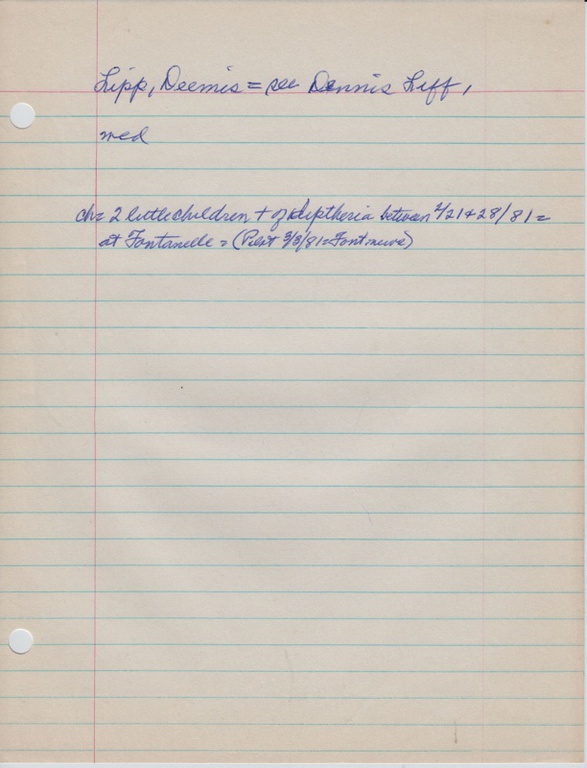 Lipp, Deemis = see Dennis Liff,
med
ch = 2 little children + of diptheria between 2/21 + 28/81 =
at Fontanelle = (Pilot 3/3/81 = Font. news)